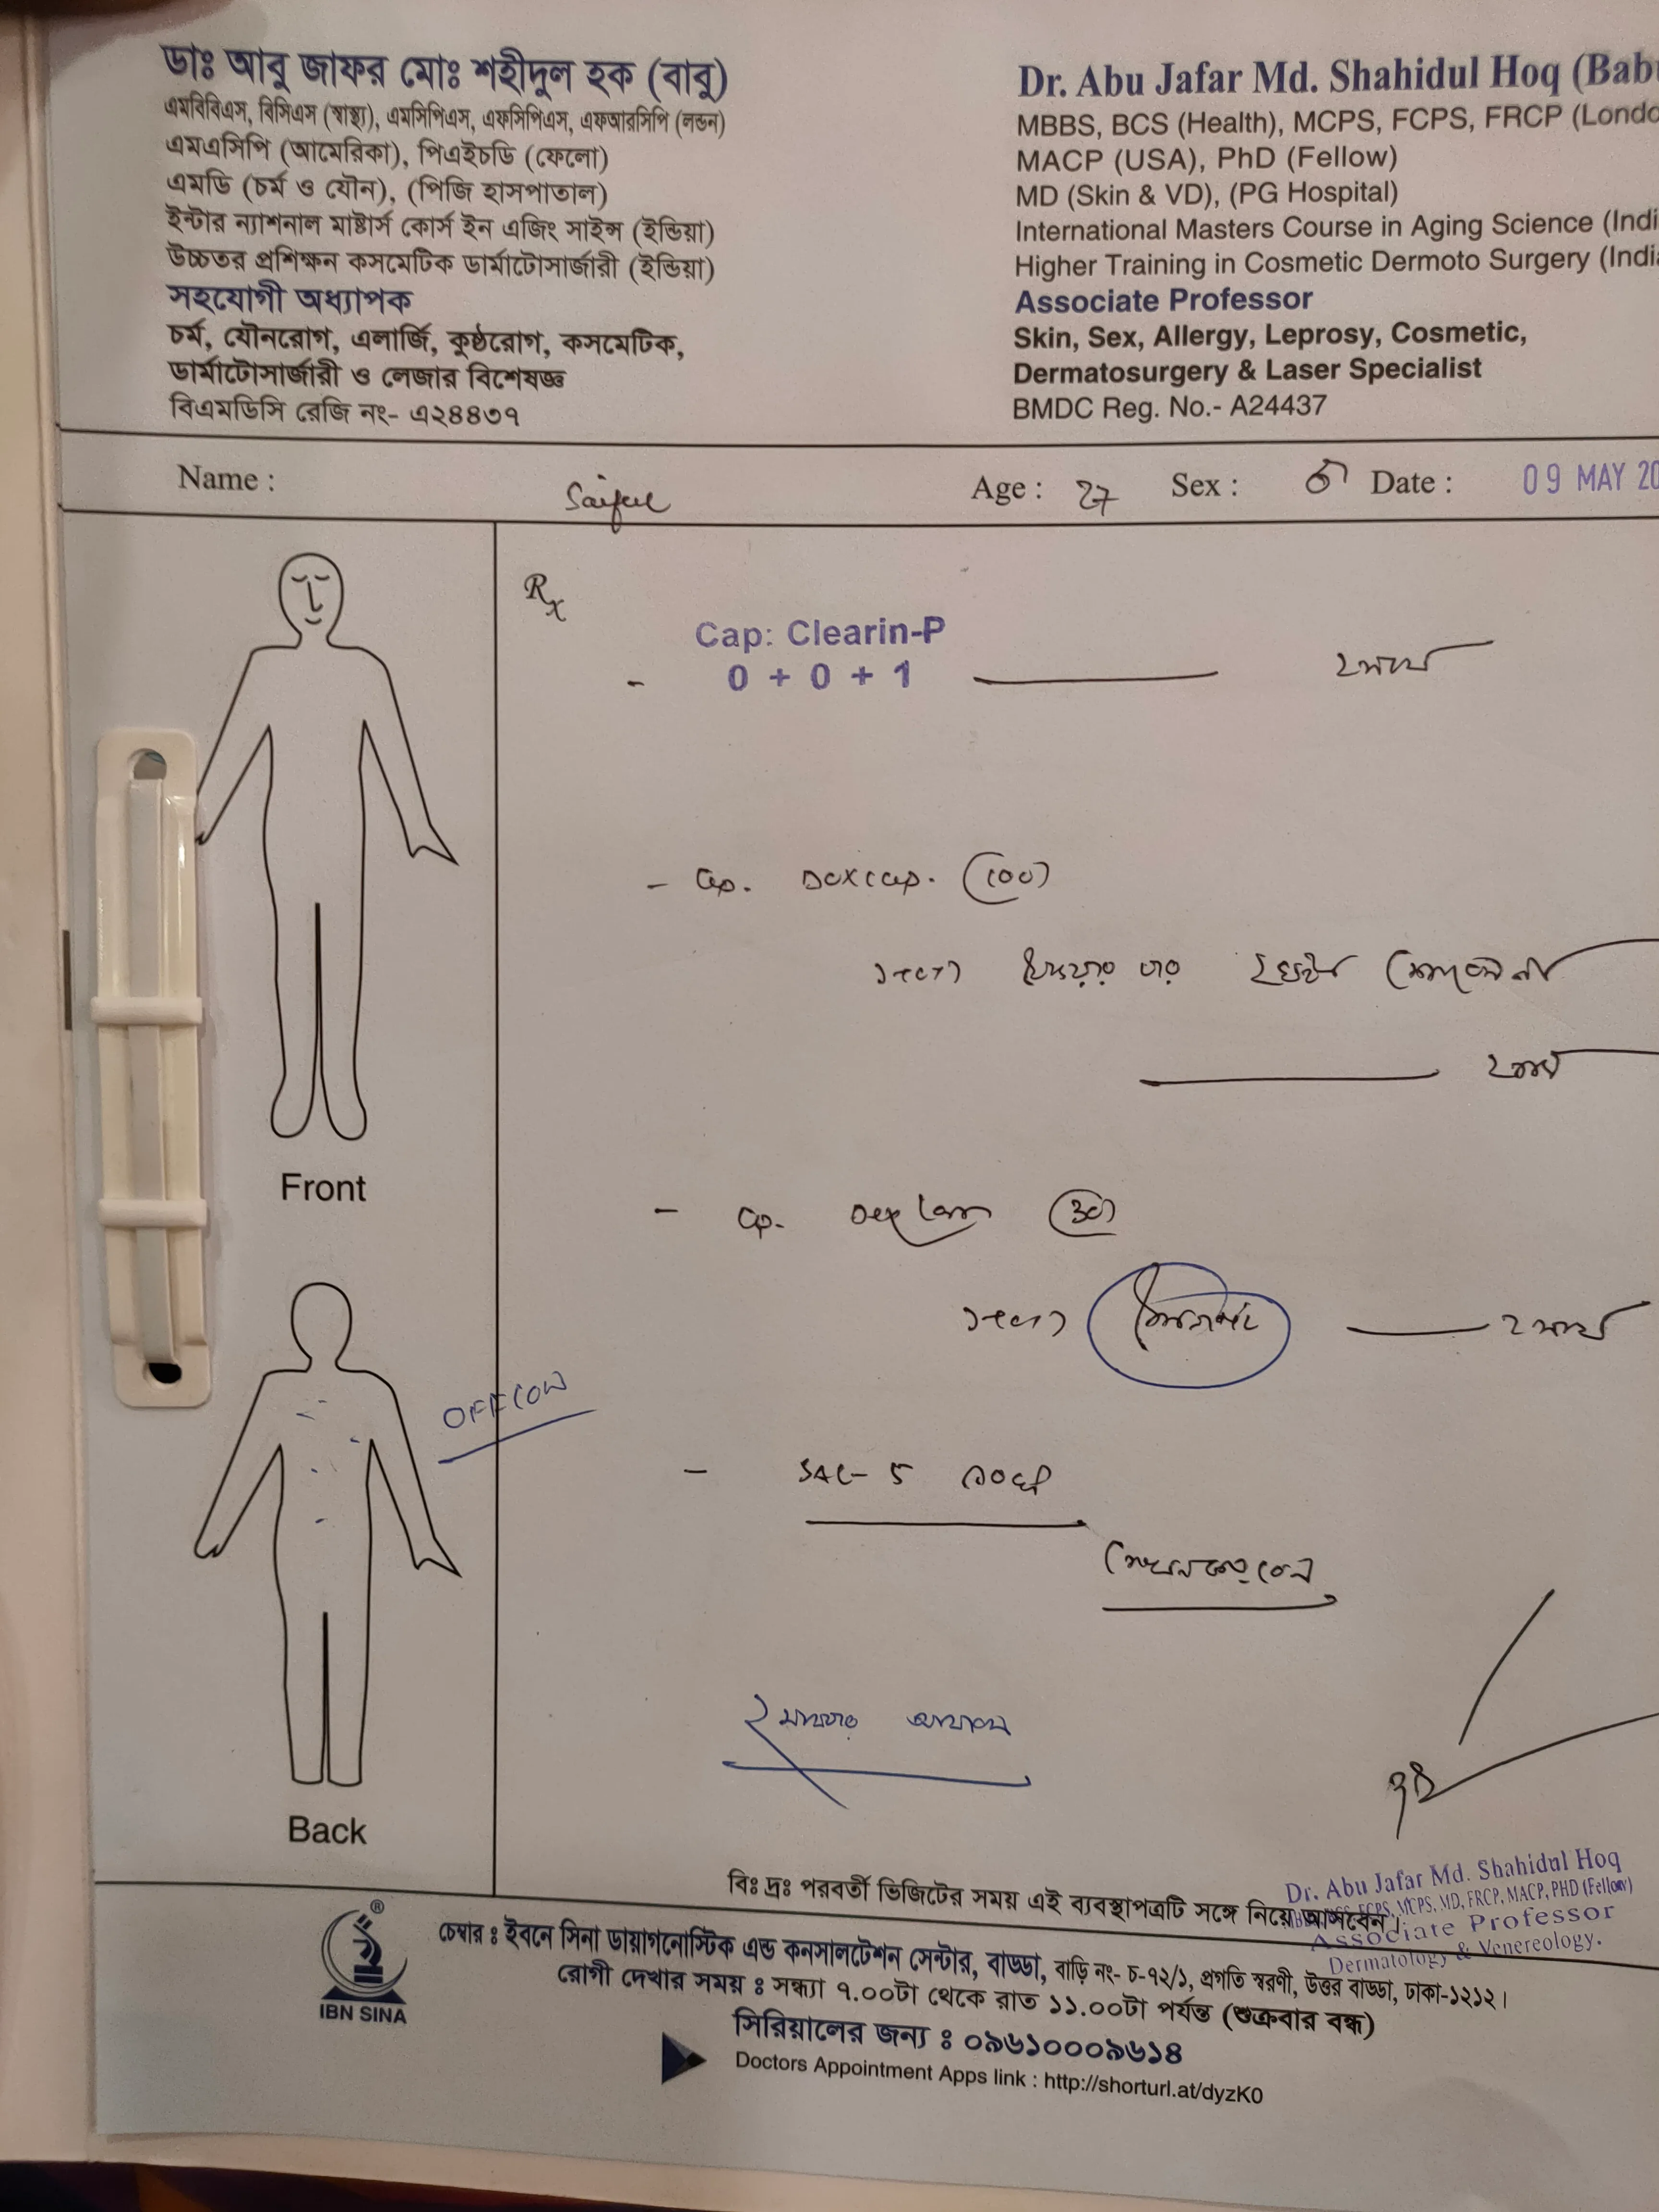 ডাঃ আবু জাফর মোঃ শহীদুল হক (বাবু)
এমবিবিএস, বিসিএস (স্বাস্থ্য), এমসিপিএস, এফসিপিএস, এফআরসিপি (লন্ডন)
এমএসিপি (আমেরিকা), পিএইচডি (ফেলো)
এমডি (চর্ম ও যৌন), (পিজি হাসপাতাল)
ইন্টার ন্যাশনাল মাষ্টার্স কোর্স ইন এজিং সাইন্স (ইন্ডিয়া)
উচ্চতর প্রশিক্ষন কসমেটিক ডার্মাটোসার্জারী (ইন্ডিয়া)
সহযোগী অধ্যাপক
চর্ম, যৌনরোগ, এলার্জি, কুষ্ঠরোগ, কসমেটিক,
ডার্মাটোসার্জারী ও লেজার বিশেষজ্ঞ
বিএমডিসি রেজি নং- এ২৪৪৩৭
Dr. Abu Jafar Md. Shahidul Hoq (Babu
MBBS, BCS (Health), MCPS, FCPS, FRCP (Londo
MACP (USA), PhD (Fellow)
MD (Skin & VD), (PG Hospital)
International Masters Course in Aging Science (Indi
Higher Training in Cosmetic Dermoto Surgery (India
Associate Professor
Skin, Sex, Allergy, Leprosy, Cosmetic,
Dermatosurgery & Laser Specialist
BMDC Reg. No.- A24437
Name : Saiful Age : 27 Sex : ♂ Date : 09 MAY 20
Rx
Cap: Clearin-P
- 0 + 0 + 1 ২ মাস
- Cap. Doxicap. (100)
১+০+১ ২ ঘন্টা
২ মাস
- Cap. Dexlan (30)
১+০+১ ২ মাস
OFFCON
- SAC- 5
২ মাস পর আসবেন
Front
Back
Dr. Abu Jafar Md. Shahidul Hoq
FCPS, MCPS, MD, FRCP, MACP, PHD (Fellow)
Associate Professor
Dermatology & Venereology.
বিঃ দ্রঃ পরবর্তী ভিজিটের সময় এই ব্যবস্থাপত্রটি সঙ্গে নিয়ে আসবেন।
IBN SINA
চেম্বার ঃ ইবনে সিনা ডায়াগনোস্টিক এন্ড কনসালটেশন সেন্টার, বাড্ডা, বাড়ি নং- চ-৭২/১, প্রগতি স্বরণী, উত্তর বাড্ডা, ঢাকা-১২১২।
রোগী দেখার সময় ঃ সন্ধ্যা ৭.০০টা থেকে রাত ১১.০০টা পর্যন্ত (শুক্রবার বন্ধ)
সিরিয়ালের জন্য ঃ ০৯৬১০০০৯৬১৪
Doctors Appointment Apps link : http://shorturl.at/dyzK0